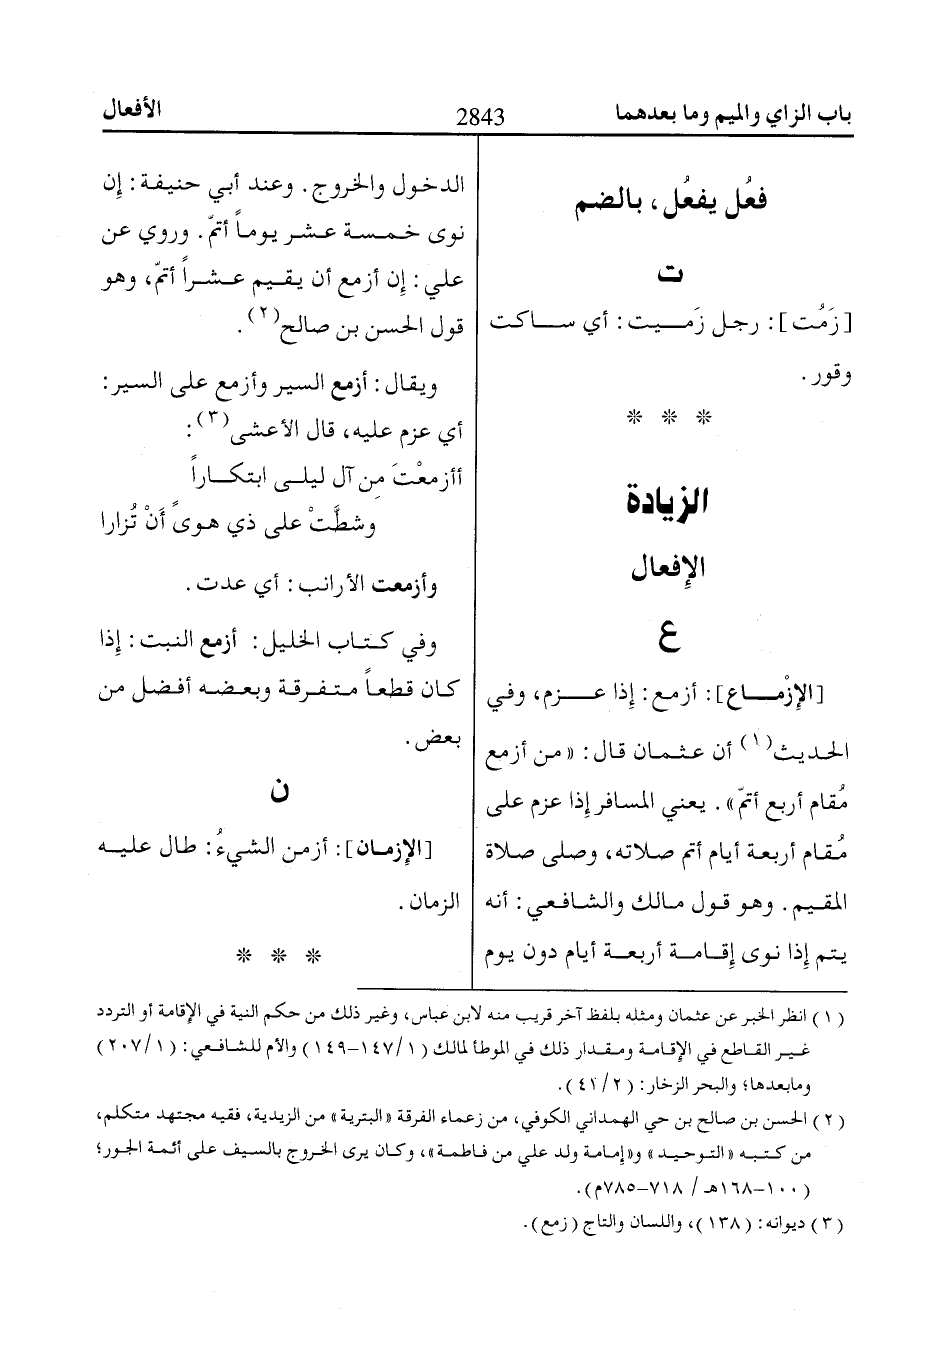 باب الزاي والميم وما بعدهما
2843
الأفعال
فعُل يفعُل، بالضم
ت
[زَمُت]: رجل زَميت: أي ساكت
وقور.
* * *
الزيادة
الإفعال
ع
[الإزْماع]: أزمع: إذا عزم، وفي
الحديث(١) أن عثمان قال: «من أزمع
مُقام أربع أتمّ». يعني المسافر إذا عزم على
مُقام أربعة أيام أتم صلاته، وصلى صلاة
المقيم. وهو قول مالك والشافعي: أنه
يتم إذا نوى إقامة أربعة أيام دون يوم
الدخول والخروج. وعند أبي حنيفة: إن
نوى خمسة عشر يوماً أتمّ. وروي عن
علي: إن أزمع أن يقيم عشراً أتمّ، وهو
قول الحسن بن صالح(٢).
ويقال: أزمع السير وأزمع على السير:
أي عزم عليه، قال الأعشى(٣):
أأزمعْتَ مِن آل ليلى ابتكاراً
وشطَّتْ على ذي هوىً أَنْ تُزارا
وأزمعت الأرانب: أي عدت.
وفي كتاب الخليل: أزمع النبت: إذا
كان قطعاً متفرقة وبعضه أفضل من
بعض.
ن
[الإزمان]: أزمن الشيءُ: طال عليه
الزمان.
* * *
(١) انظر الخبر عن عثمان ومثله بلفظ آخر قريب منه لابن عباس، وغير ذلك من حكم النية في الإقامة أو التردد
غير القاطع في الإقامة ومقدار ذلك في الموطأ لمالك (١/١٤٧-١٤٩) والأم للشافعي: (١/٢٠٧)
ومابعدها؛ والبحر الزخار: (٢/٤١).
(٢) الحسن بن صالح بن حي الهمداني الكوفي، من زعماء الفرقة «البترية» من الزيدية، فقيه مجتهد متكلم،
من كتبه «التوحيد» و«إمامة ولد علي من فاطمة»، وكان يرى الخروج بالسيف على أئمة الجور؛
(١٠٠-١٦٨هـ / ٧١٨-٧٨٥م).
(٣) ديوانه: (١٣٨)، واللسان والتاج (زمع).